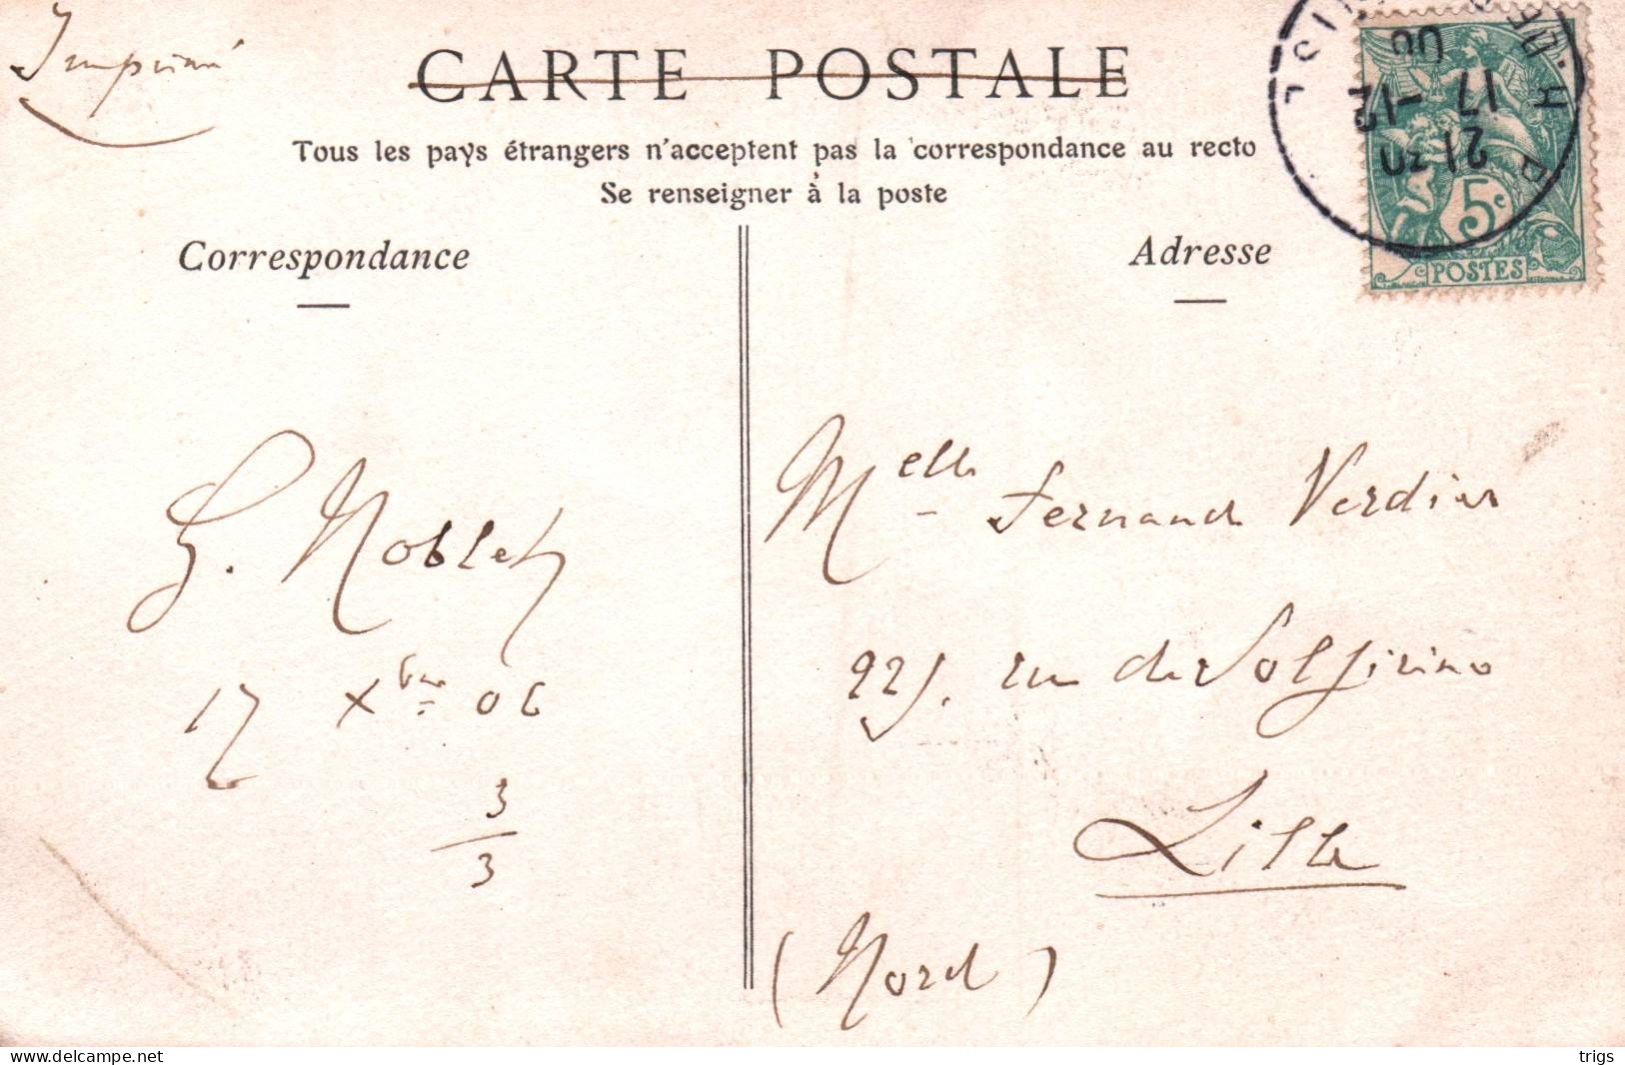 Imprimé
CARTE POSTALE
Tous les pays étrangers n'acceptent pas la correspondance au recto
Se renseigner à la poste
Correspondance
Adresse
21 30
17 -12
06
5c
POSTES
G. Noblet
17 Xbre 06
3
3
Melle Fernande Verdier
225. rue de Solferino
Lille
(Nord)
www.delcampe.net
trigs